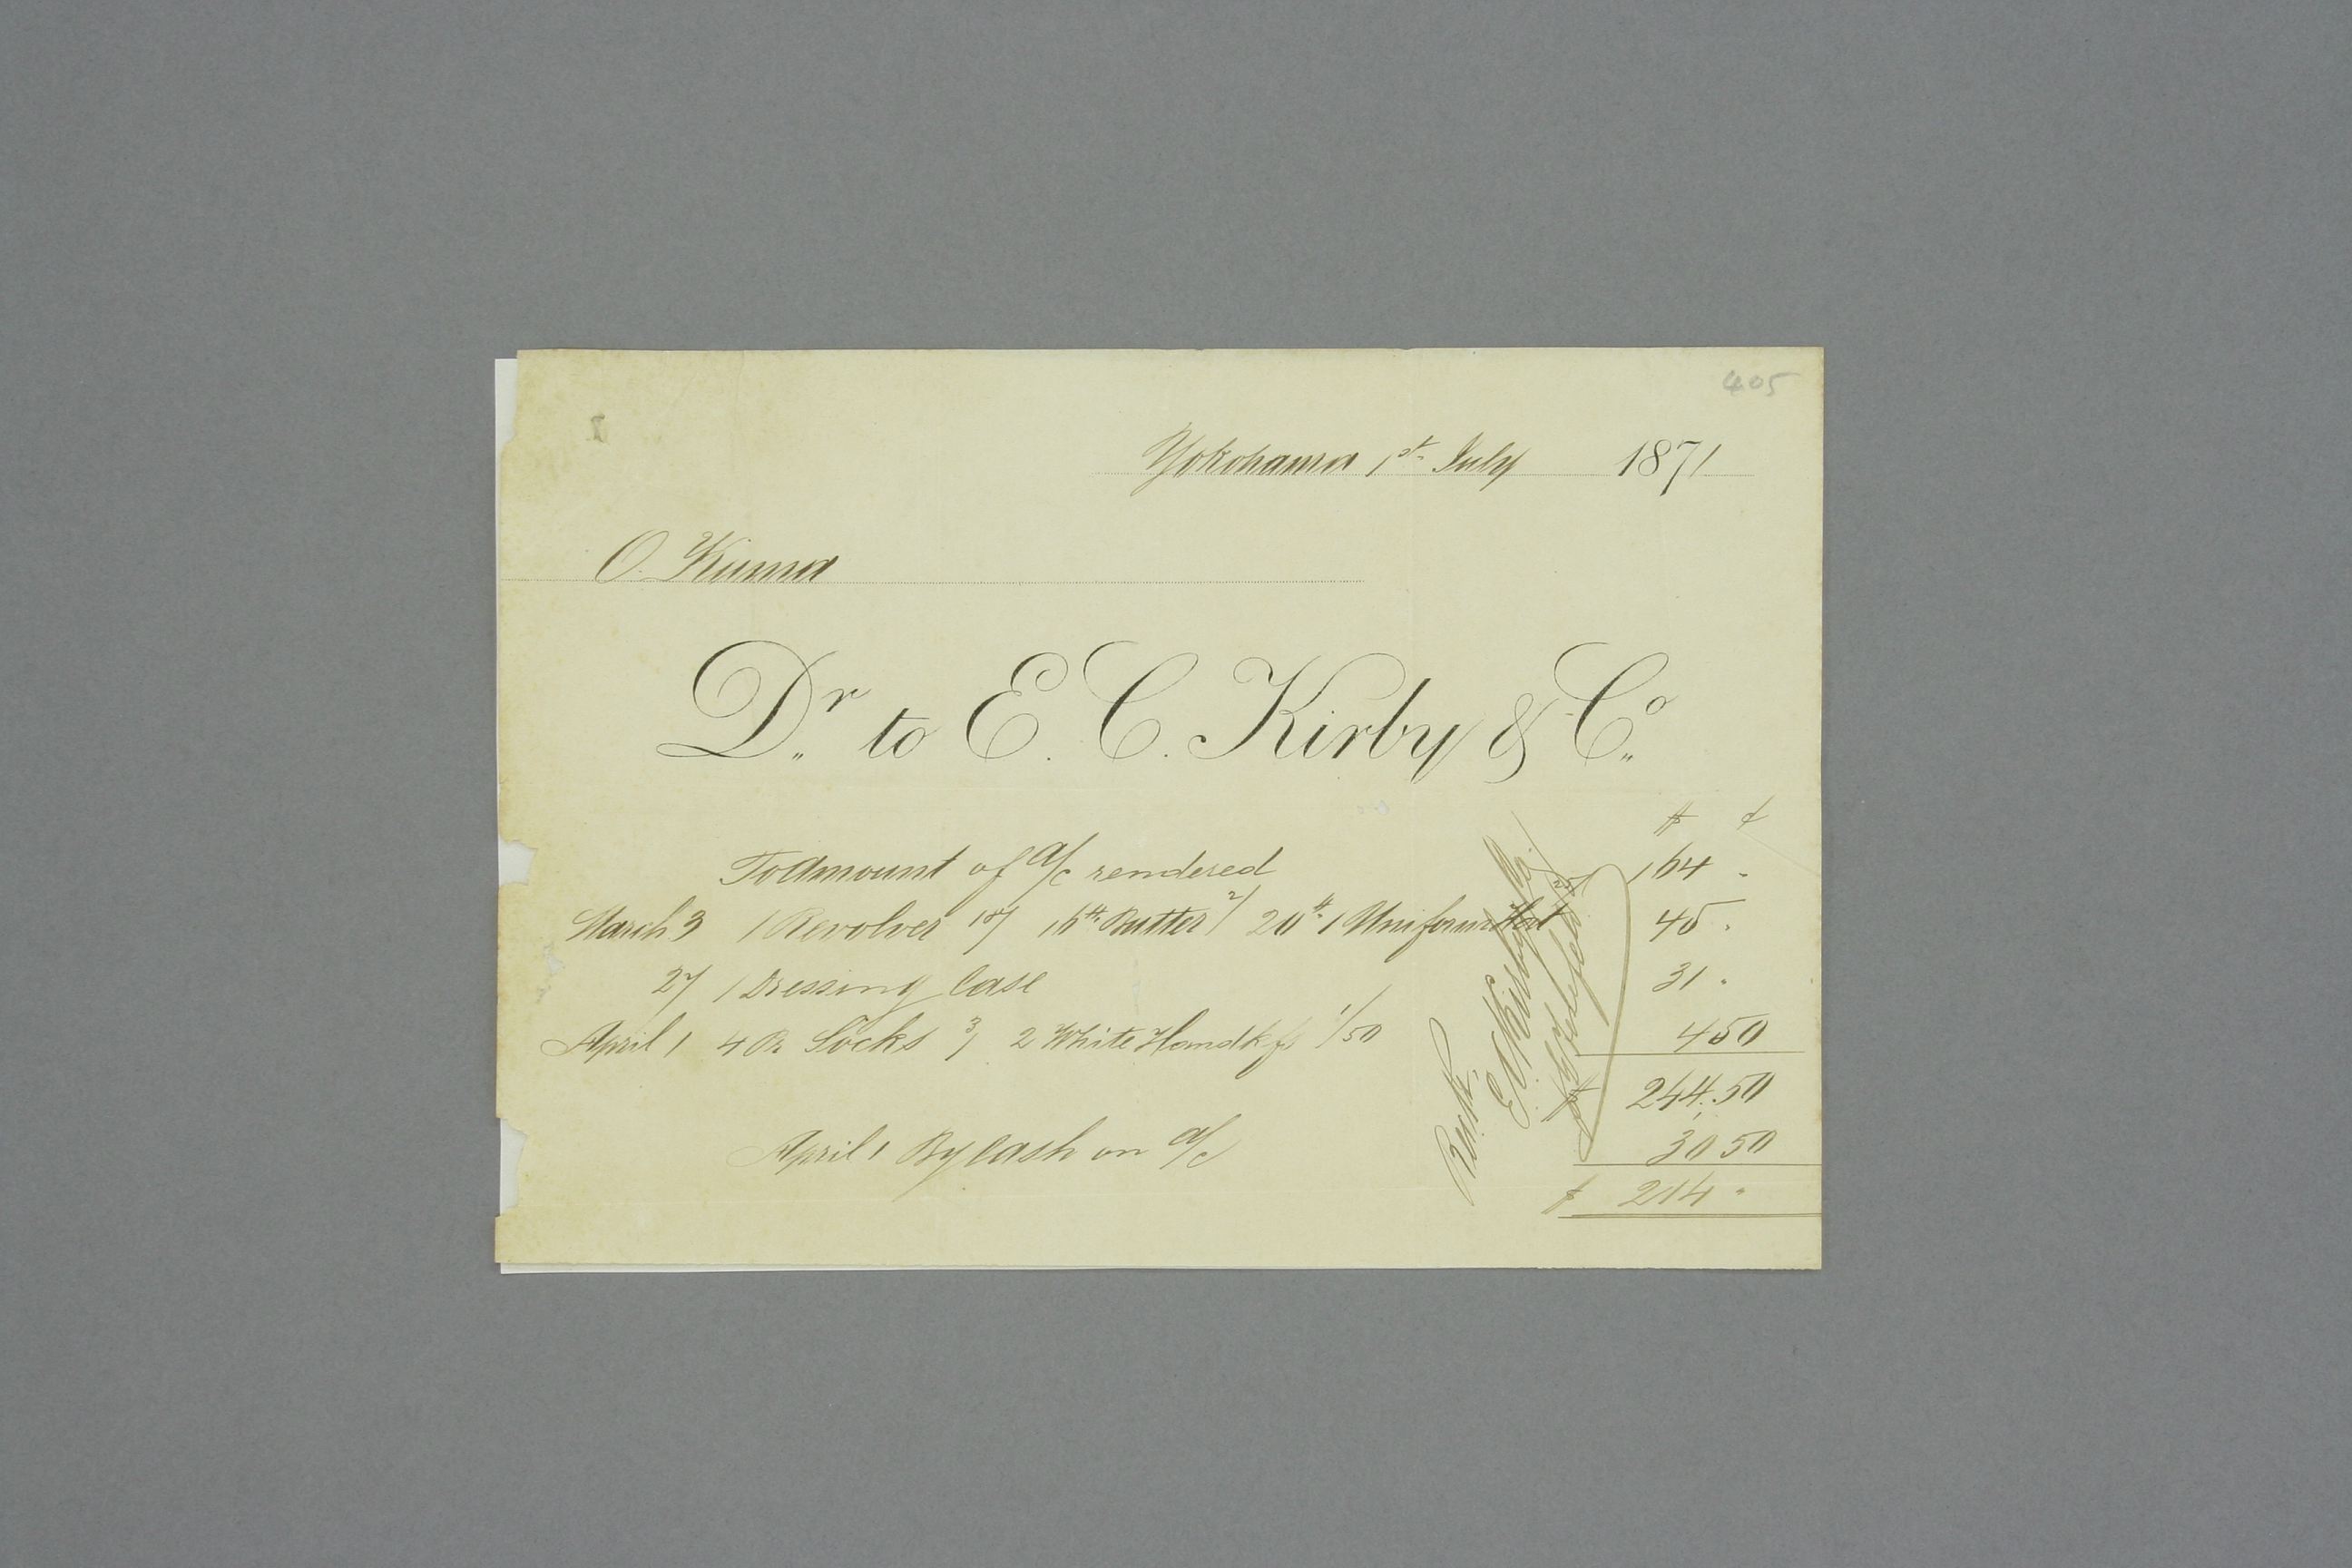 405
Yokohama 1st July 1871
O. Kuma
Dr. to E. C. Kirby & Co.
$ ¢
To Amount of a/c rendered 164 "
March 3 1 Revolver 18/ 16th Butter 2/ 20th 1 Uniform Hat 25/ 45 "
27 1 Dressing Case 31 "
April 1 4 Pr Socks 3/ 2 White Handkfs 1/50 4 50
$ 244.50
April 1 By Cash on a/c 30 50
$ 214 "
E. C. Kirby & Co.